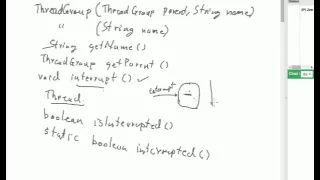 ThreadGroup (ThreadGroup parent, String name)
" (String name)
String getName()
ThreadGroup getParent()
void interrupt() ✓
Thread
interrupt
boolean isInterrupted()
static boolean interrupted()